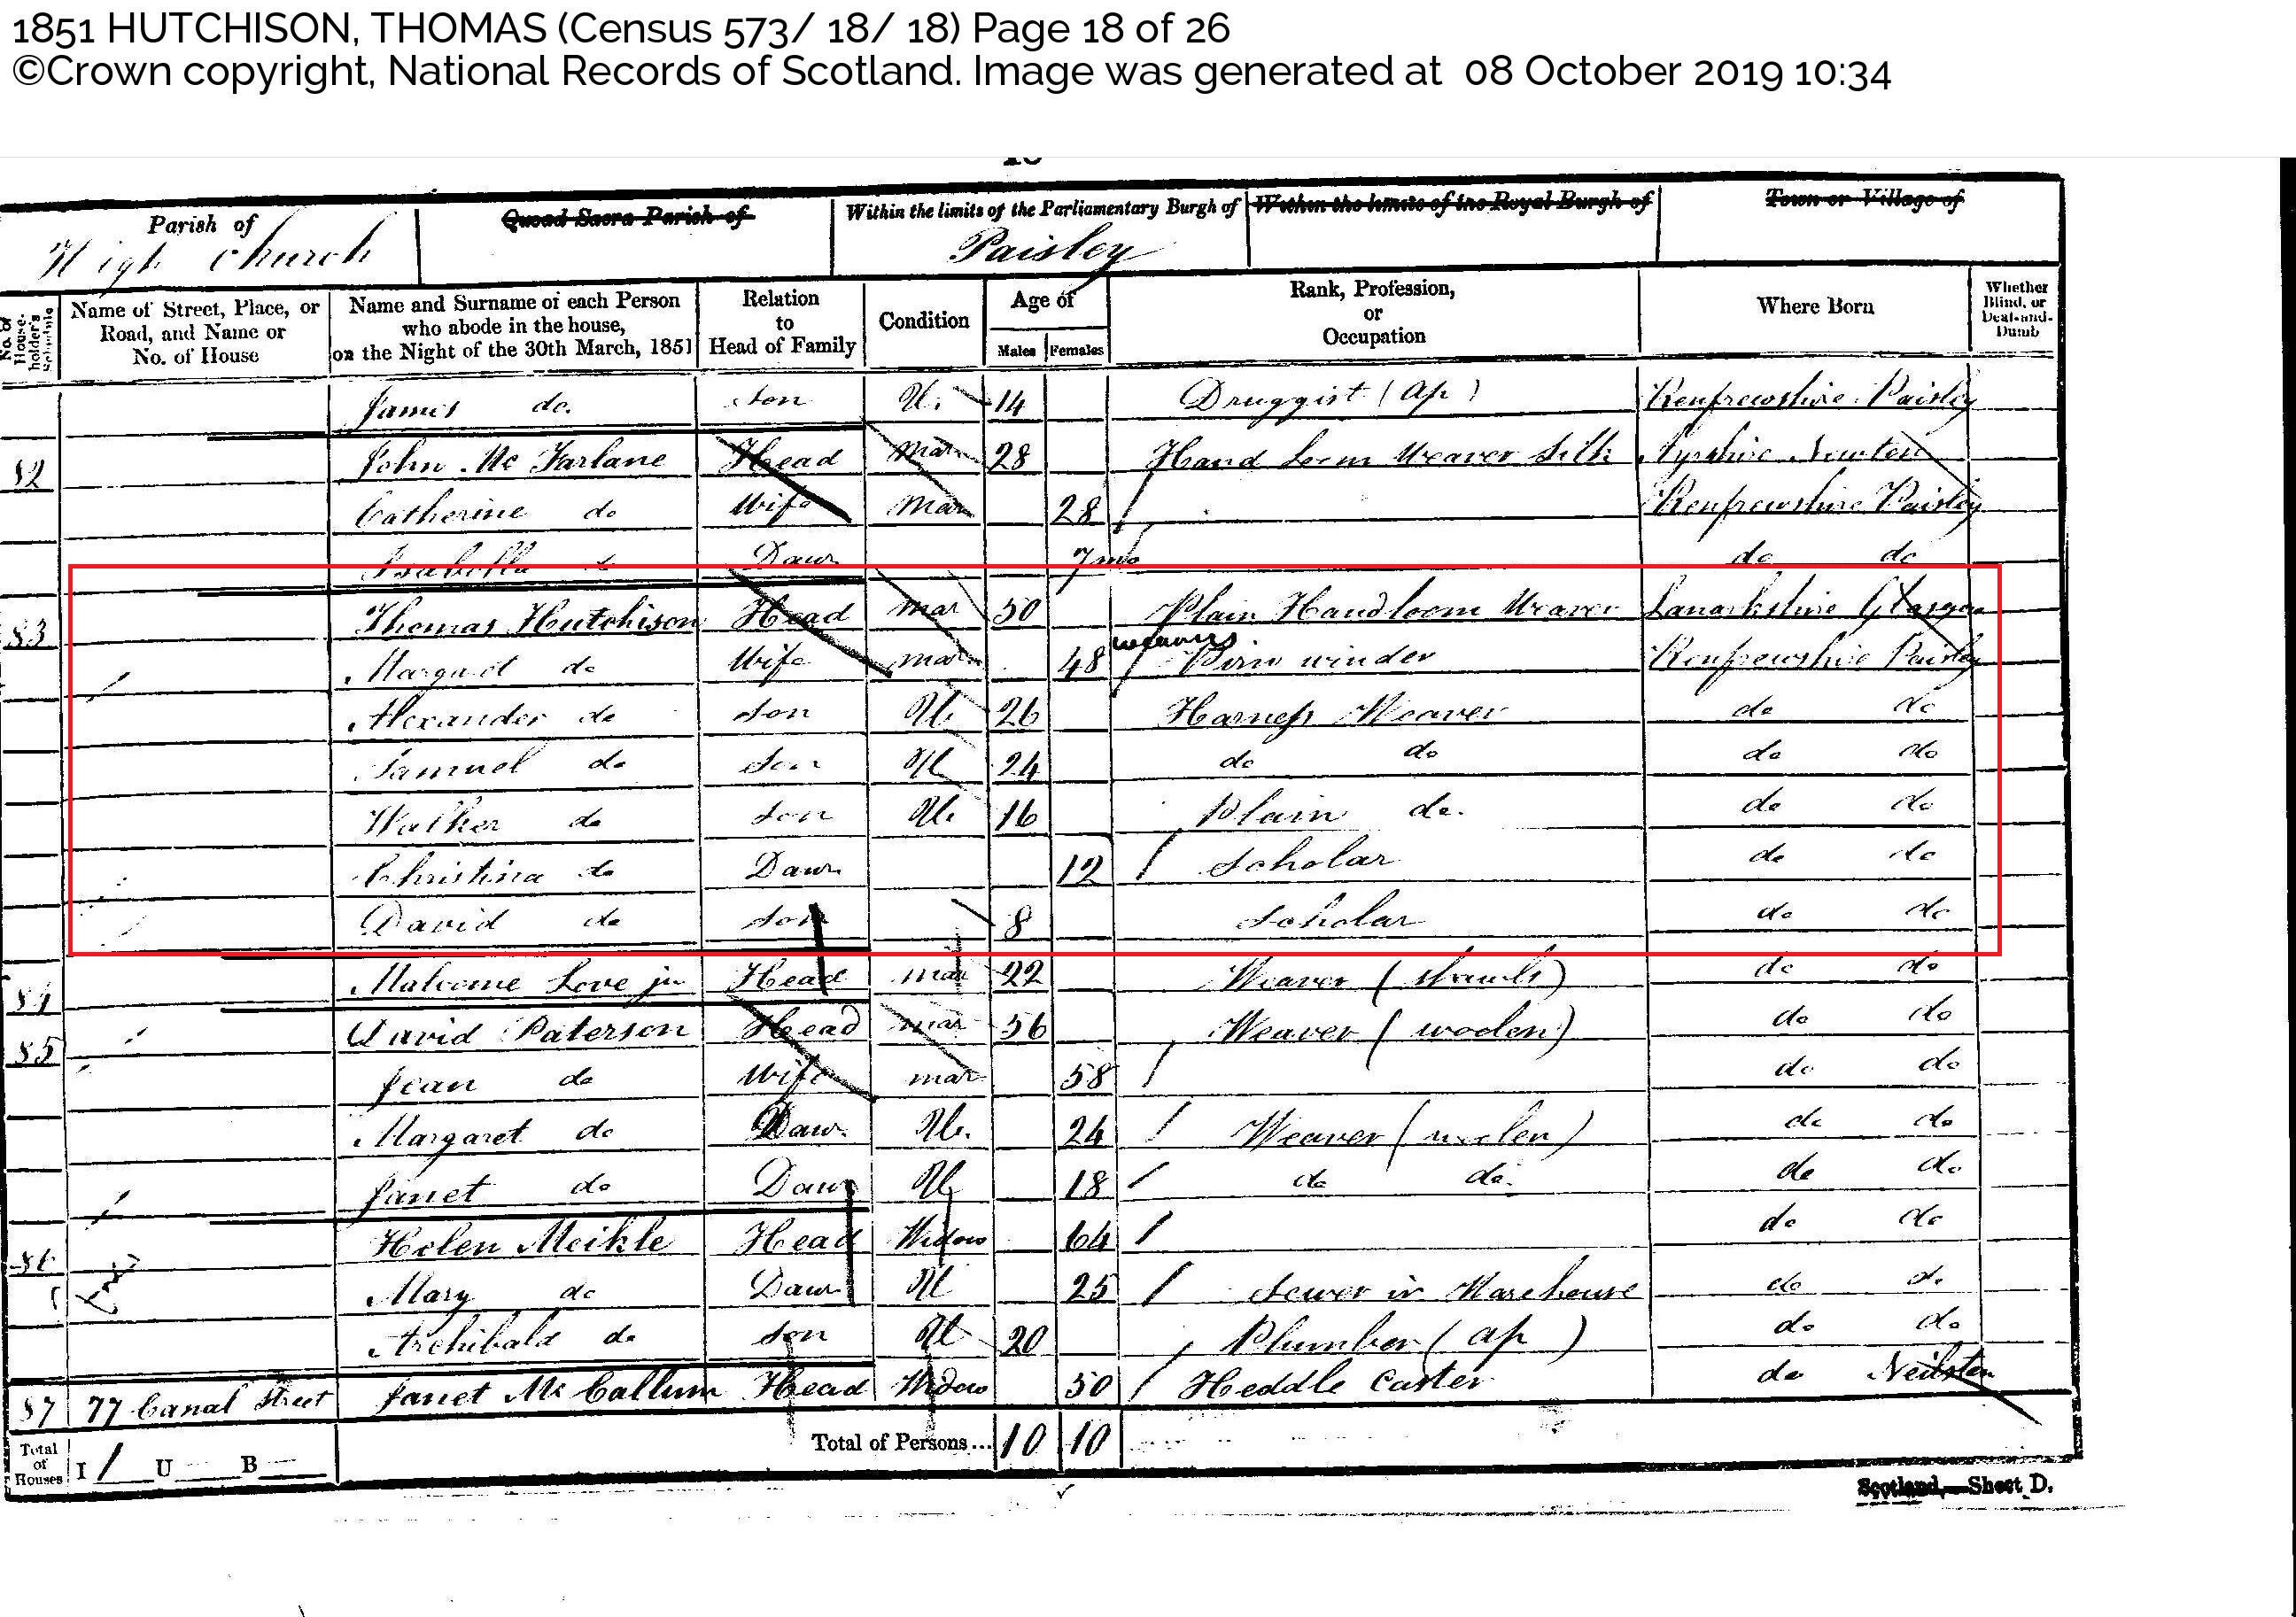 1851 HUTCHISON, THOMAS (Census 573/ 18/ 18) Page 18 of 26
©Crown copyright, National Records of Scotland. Image was generated at 08 October 2019 10:34
Parish of Quoad Sacra Parish of Within the limits of the Parliamentary Burgh of Within the limits of the Royal Burgh of Town or Village of
High Church Paisley
No. of House-holder's Schedule Name of Street, Place, or Road, and Name or No. of House Name and Surname of each Person who abode in the house, on the Night of the 30th March, 1851 Relation to Head of Family Condition Age of Males Females Rank, Profession, or Occupation Where Born Whether Blind, or Deaf-and-Dumb
James do. Son U. 14 Druggist (Ap) Renfrewshire Paisley
82 John Mc Farlane Head Mar 28 Hand Loom Weaver Silk Ayrshire Newton
Catherine do Wife Mar 28 Renfrewshire Paisley
Isabella do Daur 7 mo do do
83 Thomas Hutchison Head Mar 50 Plain Handloom Weaver Lanarkshire Glasgow
Margaret do Wife mar 48 weavers Pirn winder Renfrewshire Paisley
Alexander do Son U 26 Harness Weaver do do
Samuel do Son U 24 do do do do
Walker do Son U. 16 Plain do. do do
Christina do Daur 12 Scholar do do
David do Son 8 Scholar do do
84 Malcome Love jnr Head mar 22 Weaver (shawls) do do
85 David Paterson Head mar 56 Weaver (woolen) do do
Jean do Wife mar 58 do do
Margaret do Daur. U. 24 Weaver (woolen) do do
Janet do Daur U 18 do do. do do
86 Helen Meikle Head Widow 64 do do
Mary do Daur U 25 Sewer in Warehouse do do
Archibald do Son U 20 Plumber (ap) do do
87 77 Canal Street Janet Mc Callum Head Widow 50 Heddle Caster do Neilston
Total of Houses I 1 U B Total of Persons... 10 10
Scotland,—Sheet D.